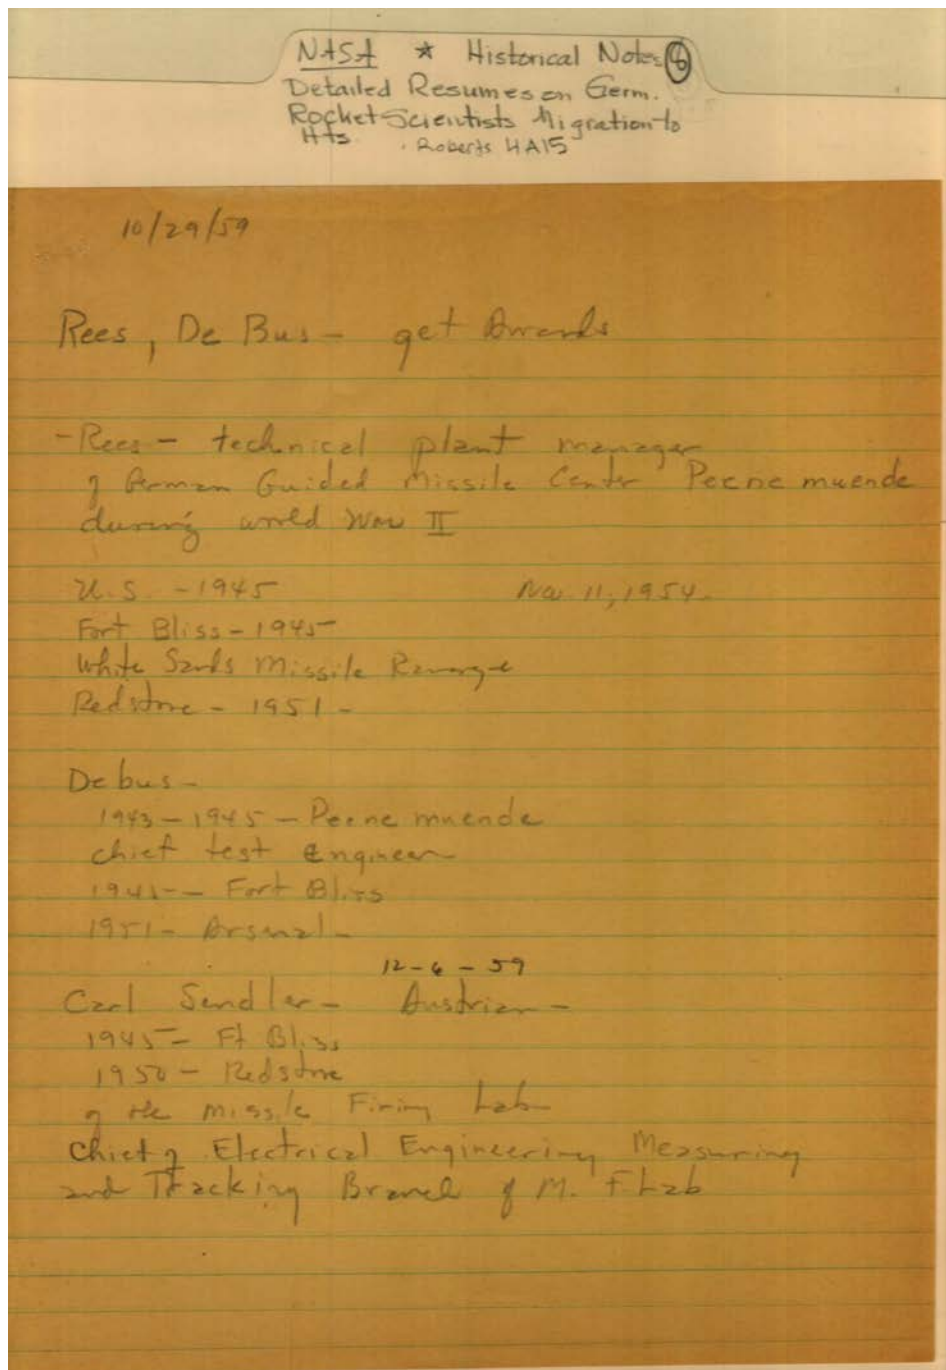 NASA * Historical Notes 8
Detailed Resumes on Germ.
Rocket Scientists Migration to
Hts. Roberts HA15
10/29/59
Rees, De Bus - get Awards
- Rees - technical plant manager
of German Guided Missile Center Peenemuende
during world War II
U.S. - 1945 Nov 11, 1954
Fort Bliss - 1945
White Sands Missile Range
Redstone - 1951 -
Debus -
1943 - 1945 - Peenemuende
chief test engineer
1945 - Fort Bliss
1951 - Arsenal -
12-6-59
Carl Sendler - Austrian -
1945 - Ft Bliss
1950 - Redstone
of the Missile Firing Lab
Chief of Electrical Engineering Measuring
and Tracking Branch of M. F. Lab